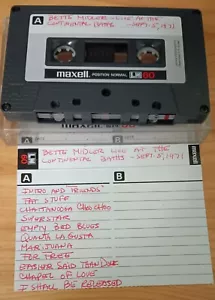 A BETTE MIDLER - LIVE AT THE
CONTINENTAL BATHS - SEPT. 5, 1971
maxell. POSITION NORMAL LN 60
A BETTE MIDLER LIVE AT THE
CONTINENTAL BATHS - SEPT. 5, 1971
maxell LN 60
A B
INTRO AND FRIENDS
FAT STUFF
CHATTANOOGA CHOO CHOO
SUPERSTAR
EMPTY BED BLUES
QUANTA LA GUSTA
MARIJUANA
FOR FREE
EASIER SAID THAN DONE
CHAPEL OF LOVE
I SHALL BE RELEASED